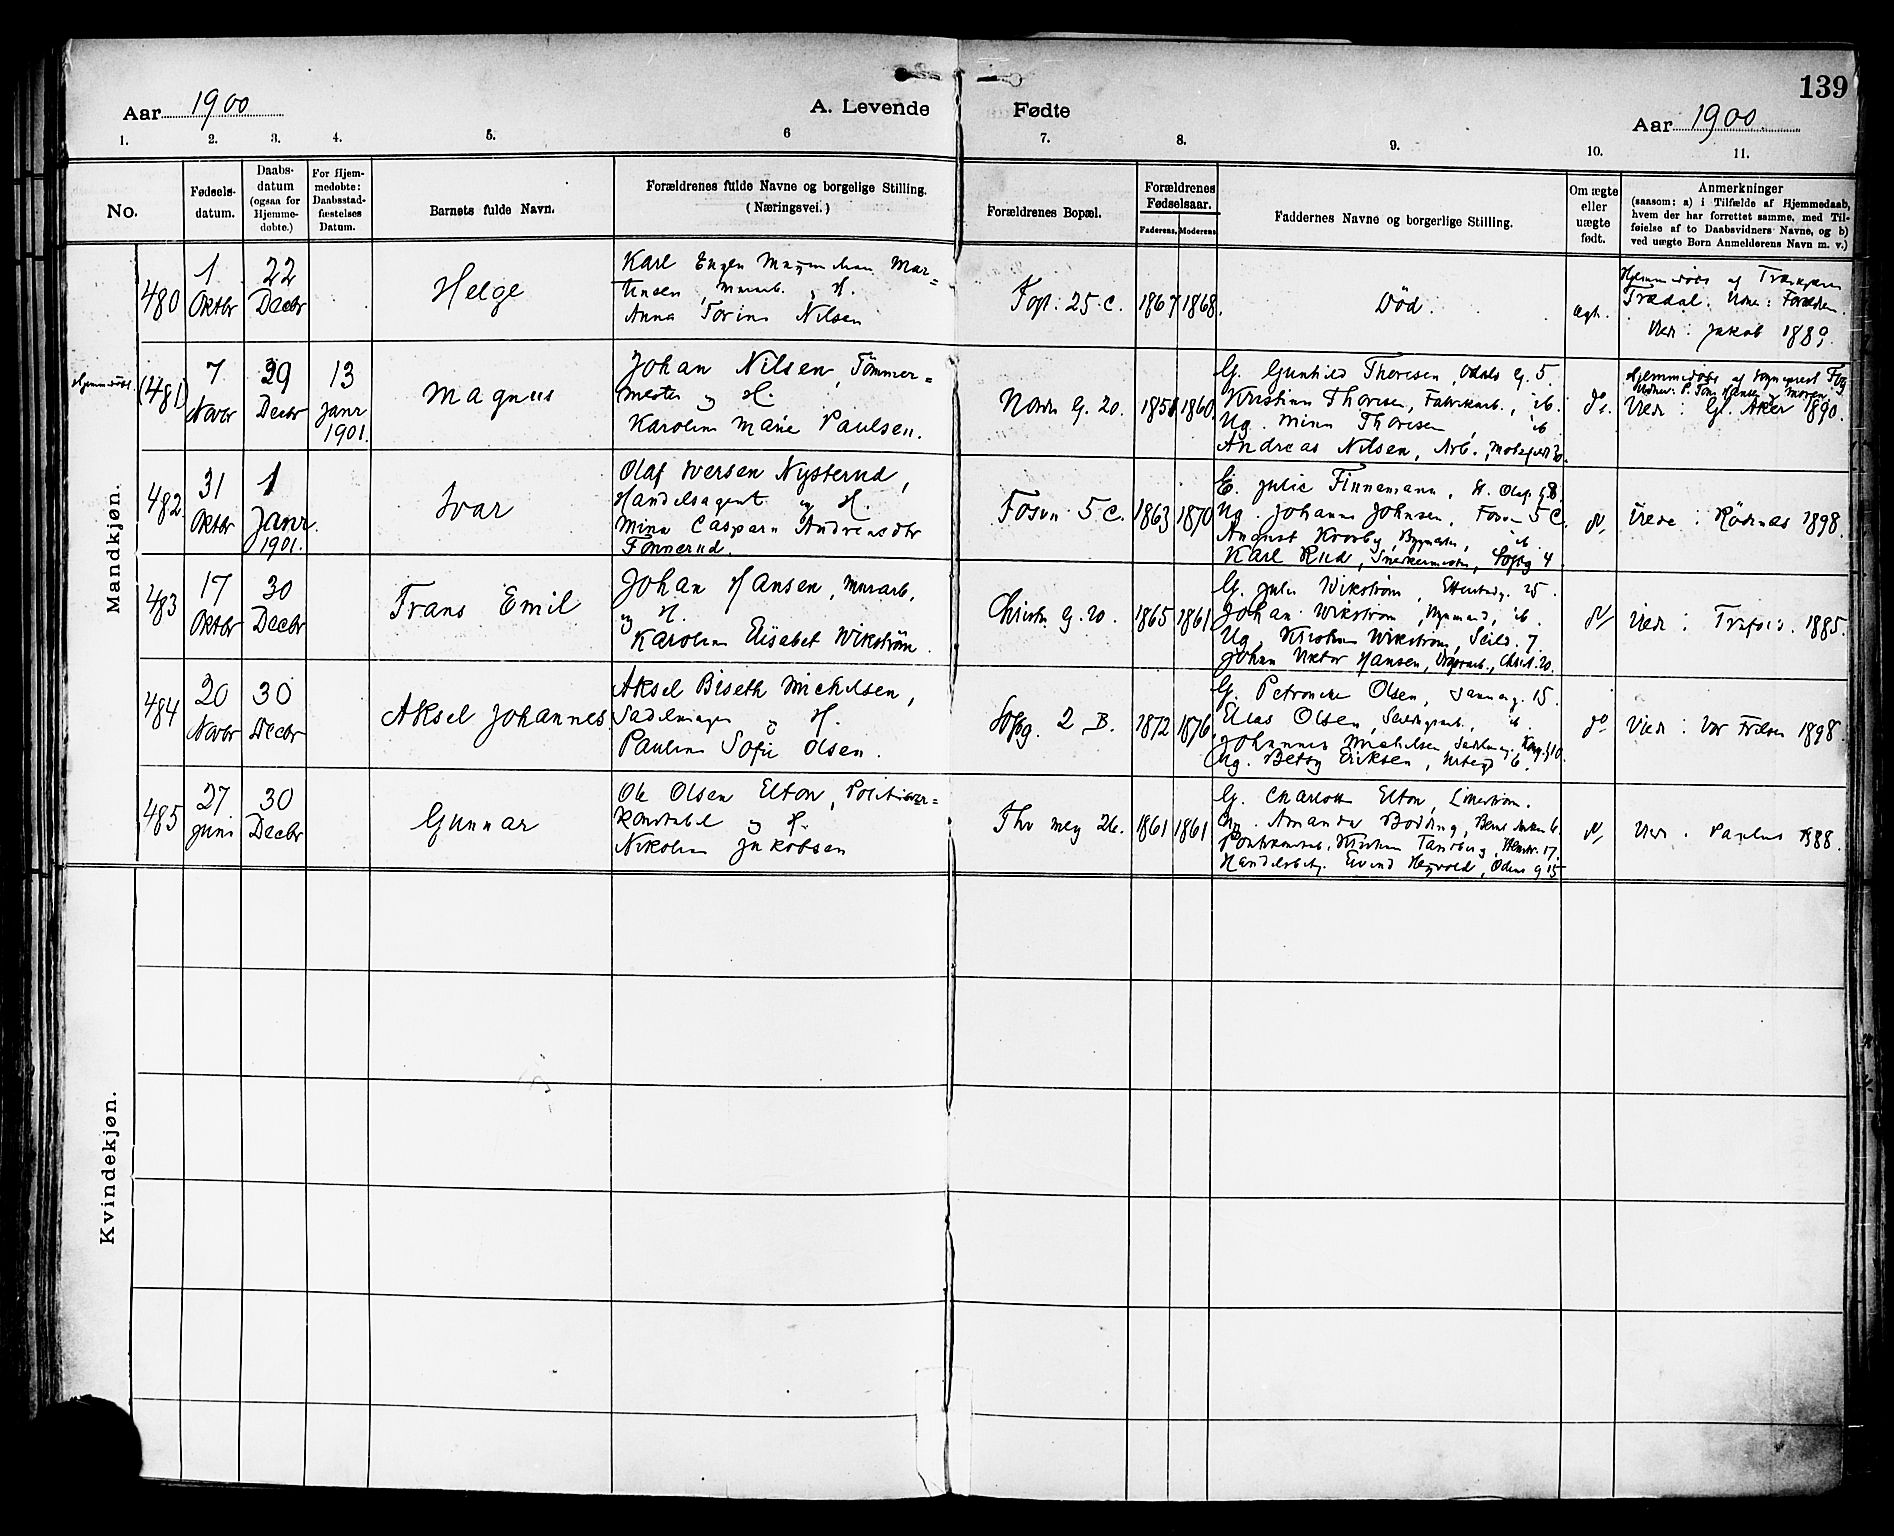 139
Aar 1900
A. Levende
Fødte
Aar 1900
1.
2.
3.
4.
5.
6
7.
8.
9.
10.
11.
No.
Fødsels-
datum.
Daabs-
datum
(ogsaa for
Hjemme-
døbte.)
For Hjem-
medøbte:
Daabsstad-
fæstelses
Datum.
Barnets fulde Navn.
Forældrenes fulde Navne og borgelige Stilling.
(Næringsvei.)
Forældrenes Bopæl.
Forældrenes
Fødselsaar.
Faderens.
Moderens
Faddernes Navne og borgerlige Stilling.
Om ægte
eller
uægte
født.
Anmerkninger
(saasom: a) i Tilfælde af Hjemmedaab,
hvem der har forrettet samme, med Til-
føielse af to Daabsvidners Navne, og b)
ved uægte Børn Anmelderens Navn m. v.)
Mandkjøn.
480
1
Oktbr
22
Decbr
Helge
Karl Mar=
tinsen, Murarb. , H.
Anna Nilsen
25 C.
1867
1868.
Død.
ægt.
Hjemmedøbt af
Jakob 1889
Hjemmedøbt
(481)
7
Novbr
29
Decbr
13
Janr
1901.
Magnus
Johan Nilsen, Tømmer=
mester og H.
Karoline Marie Paulsen.
Nordr G. 20.
1860.
G. Gunhild Thoresen, Odals G. 5.
Kristian Thoresen, Fabrikarb., ib.
Ug. Mina Thoresen, ib
Andreas Nilsen, Arb.,
do.
Hjemmedøbt af Sogneprest
Viede: Gl. Aker 1890.
482
31
Oktbr
1
Janr.
1901.
Ivar
Olaf Iversen Nysterud,
Handelsagent og H.
Mina Caspara Andreasdtr
Tønnerud.
Fosvn 5 C.
1863
1870
E. Julie Finnemann, St. Olafs
Ug. Johanne Johnsen, Fosvn 5 C.
August ib
Karl Rud, Snekkermester, Sofbg 4
Viede: Rødenes 1898.
483
17
Oktbr
30
Decbr
Frans Emil
Johan Hansen, Murarb.
og H.
Karoline Elisabet Wikstrøm.
Christn G. 20.
1865
1861
G. Julie Wikstrøm, 25.
Johan Wikstrøm, ib.
Ug. Kirstine Wikstrøm, Seild. 7.
Johan Viktor Hansen, Christ. 20.
Viede: Trefold. 1885.
484
20
Novbr
30
Decbr
Aksel Johannes
Aksel Biseth Michelsen,
Sadelmager og H.
Pauline Sofie Olsen.
Sofbg. 2 B.
1872
1876
G. Petronelle Olsen, 15.
Elias Olsen ib.
Johannes Michelsen,
Ug. Betsy Eriksen,
do
Viede: Vor Frelser 1898.
485
27
Juni
30
Decbr
Gunnar
Ole Olsen Elton, Politiover=
konstabel og H.
Nikoline Jakobsen
Thv Mey 26.
1861
1861
G. Charlotte Elton, Lillestrøm.
Amanda Bødding,
Kirstine Tandberg, 17.
Handelsbetj. Eivind Heyvold, Odens g 15
Viede: Paulus 1888.
Kvindekjøn.